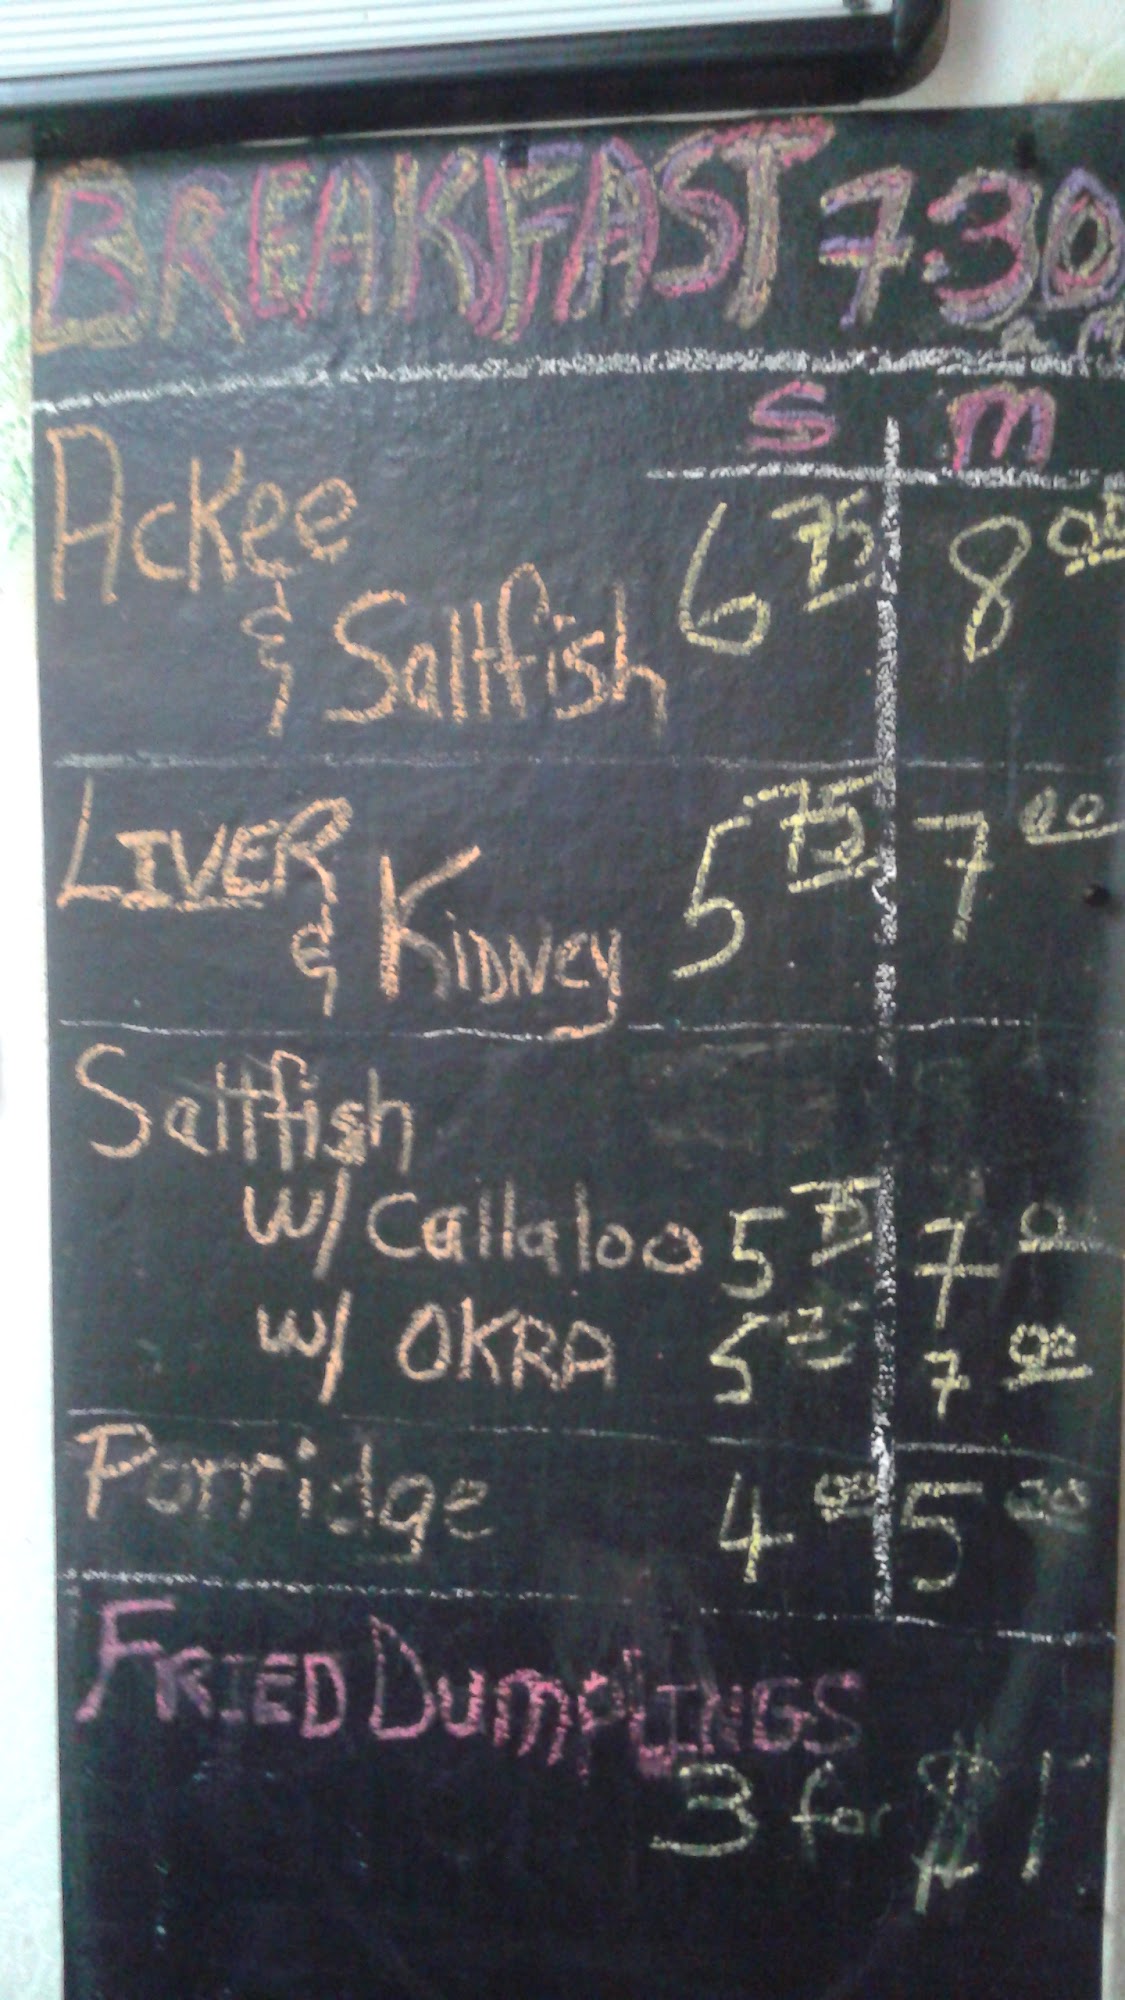 BREAKFAST 7:30
A.M
S M
Ackee 6 75 8 00
& Saltfish
LIVER 5 75 7 00
& KIDNEY
Saltfish
w/ Callaloo 5 75 7 00
w/ OKRA 5 75 7 00
Porridge 4 00 5 00
FRIED DUMPLINGS
3 for $1